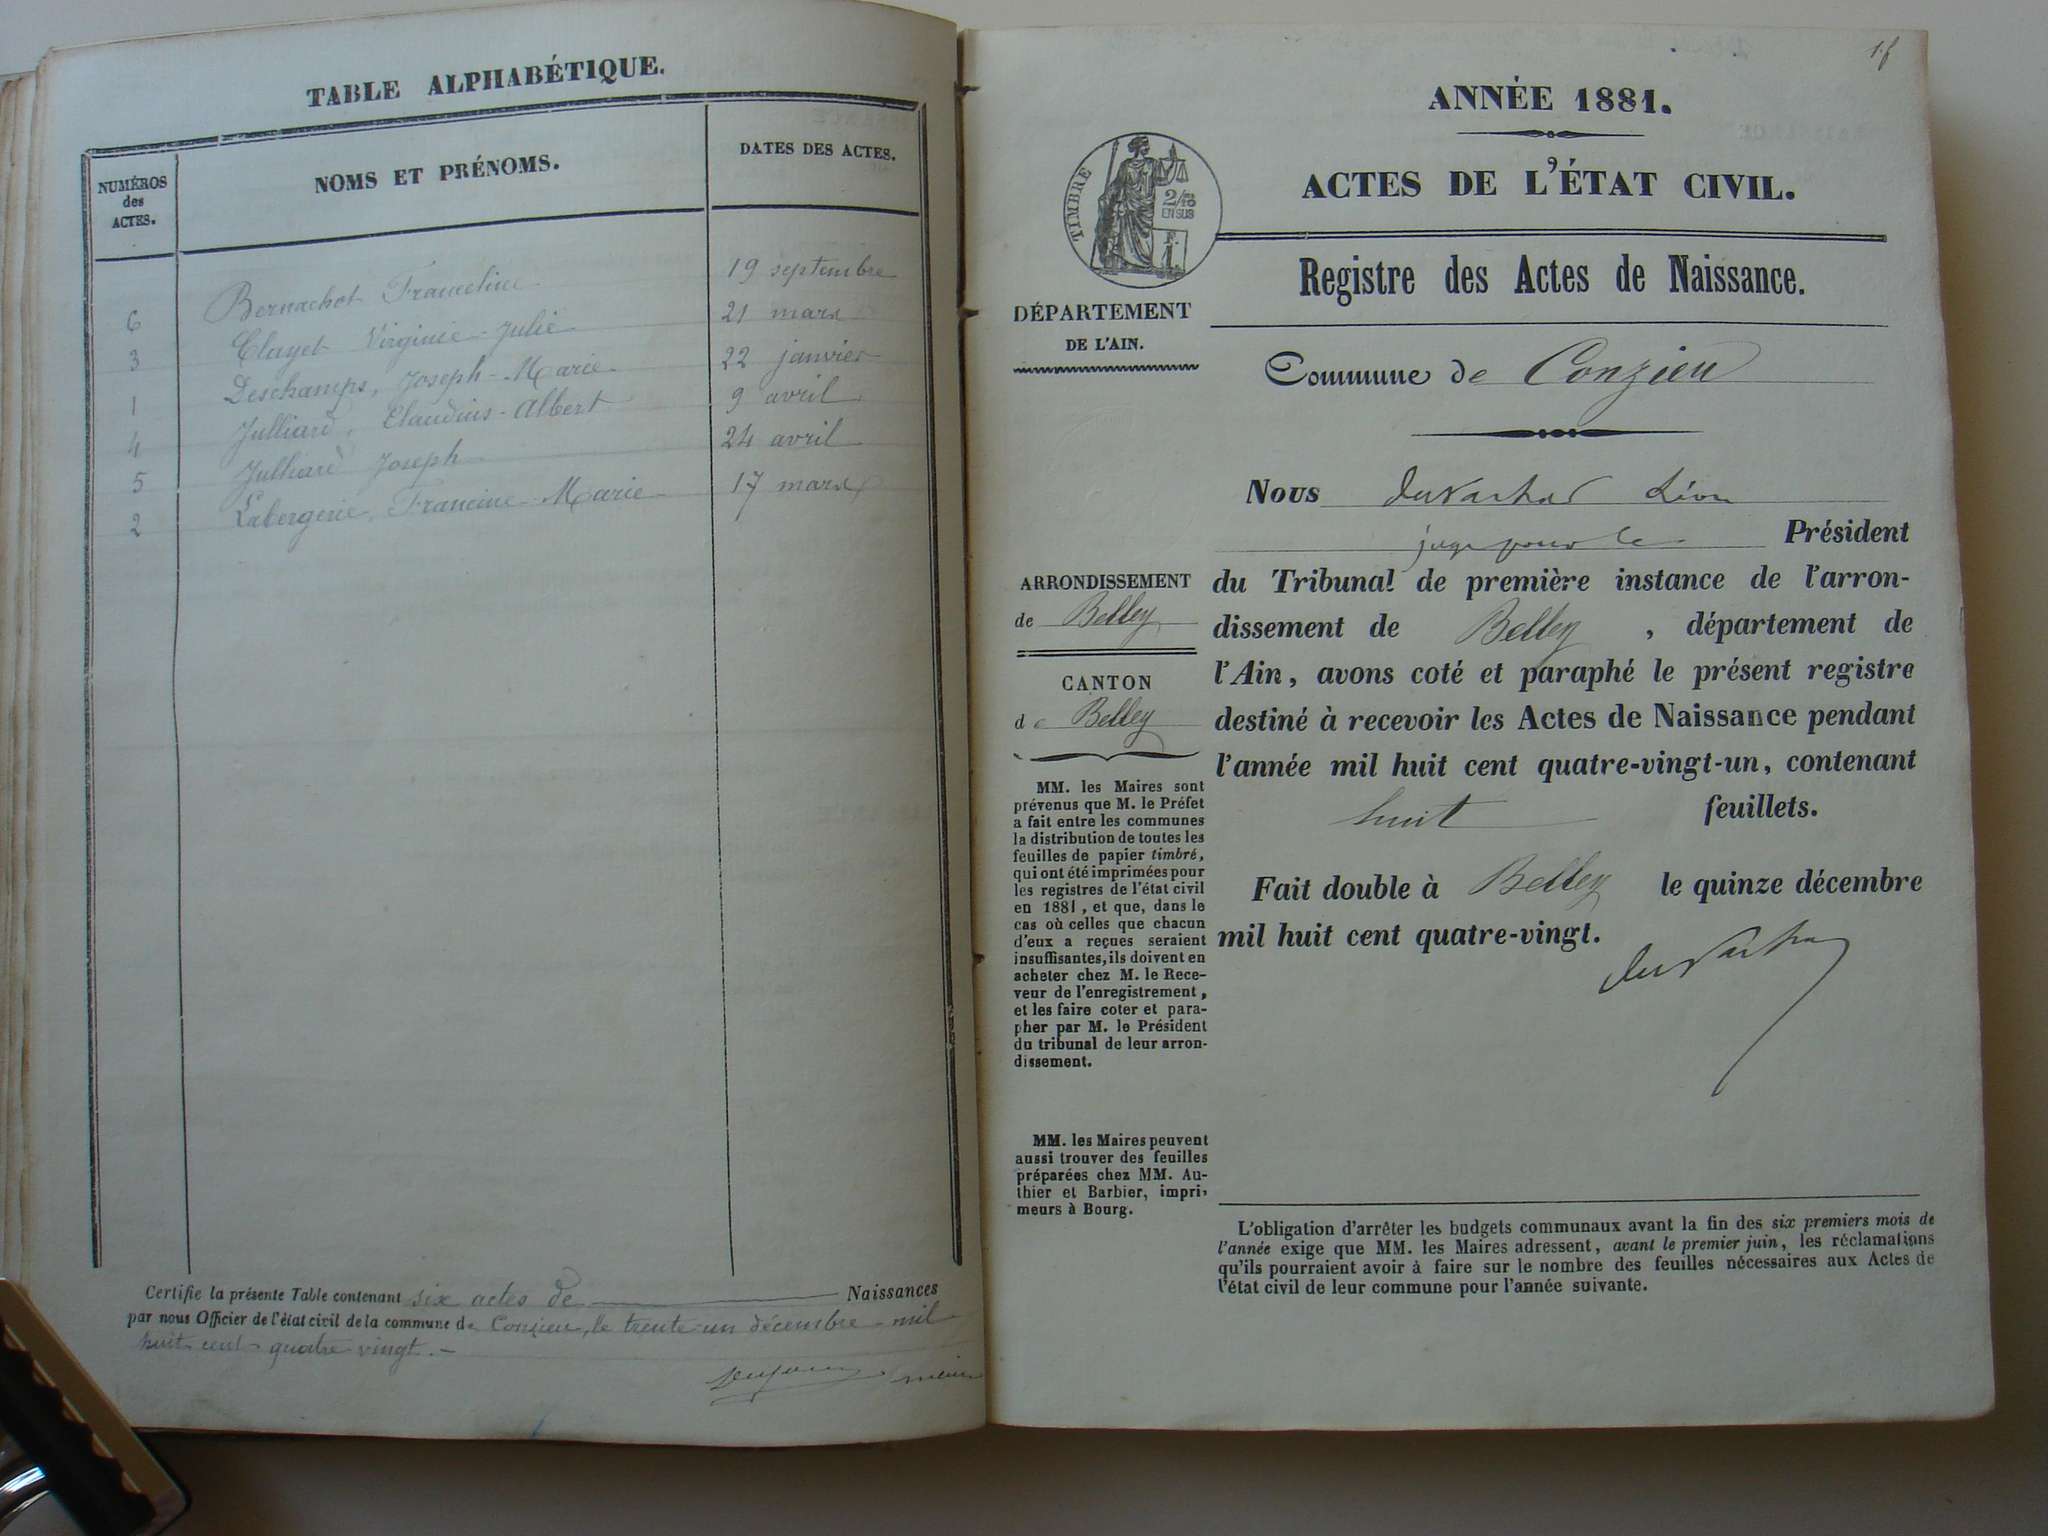 TABLE ALPHABÉTIQUE.
NUMÉROS
des
ACTES.
NOMS ET PRÉNOMS.
DATES DES ACTES.
6 Bernachot Franceline 19 septembre
3 Clayet Virginie-Julie 21 mars
1 Deschamps, Joseph-Marie 22 janvier
4 Julliard, Claudius-Albert 9 avril
5 Julliard Joseph 24 avril
2 Labergerie, Francine-Marie 17 mars
Certifie la présente Table contenant six actes de Naissances
par nous Officier de l'état civil de la commune de Conzieu, le trente-un décembre mil
huit cent quatre vingt.-
maire
1.f
ANNÉE 1881.
ACTES DE L'ÉTAT CIVIL.
TIMBRE
2/10
EN SUS
Registre des Actes de Naissance.
DÉPARTEMENT
DE L'AIN.
Commune de Conzieu
Nous Léon
juge pour le Président
ARRONDISSEMENT
de Belley
CANTON
de Belley
du Tribunal de première instance de l'arron-
dissement de Belley, département de
l'Ain, avons coté et paraphé le présent registre
destiné à recevoir les Actes de Naissance pendant
l'année mil huit cent quatre-vingt-un, contenant
huit feuillets.
Fait double à Belley le quinze décembre
mil huit cent quatre-vingt.
MM. les Maires sont
prévenus que M. le Préfet
a fait entre les communes
la distribution de toutes les
feuilles de papier timbré,
qui ont été imprimées pour
les registres de l'état civil
en 1881, et que, dans le
cas où celles que chacun
d'eux a reçues seraient
insuffisantes, ils doivent en
acheter chez M. le Rece-
veur de l'enregistrement,
et les faire coter et para-
pher par M. le Président
du tribunal de leur arron-
dissement.
MM. les Maires peuvent
aussi trouver des feuilles
préparées chez MM. Au-
thier et Barbier, impri-
meurs à Bourg.
L'obligation d'arrêter les budgets communaux avant la fin des six premiers mois de
l'année exige que MM. les Maires adressent, avant le premier juin, les réclamations
qu'ils pourraient avoir à faire sur le nombre des feuilles nécessaires aux Actes de
l'état civil de leur commune pour l'année suivante.